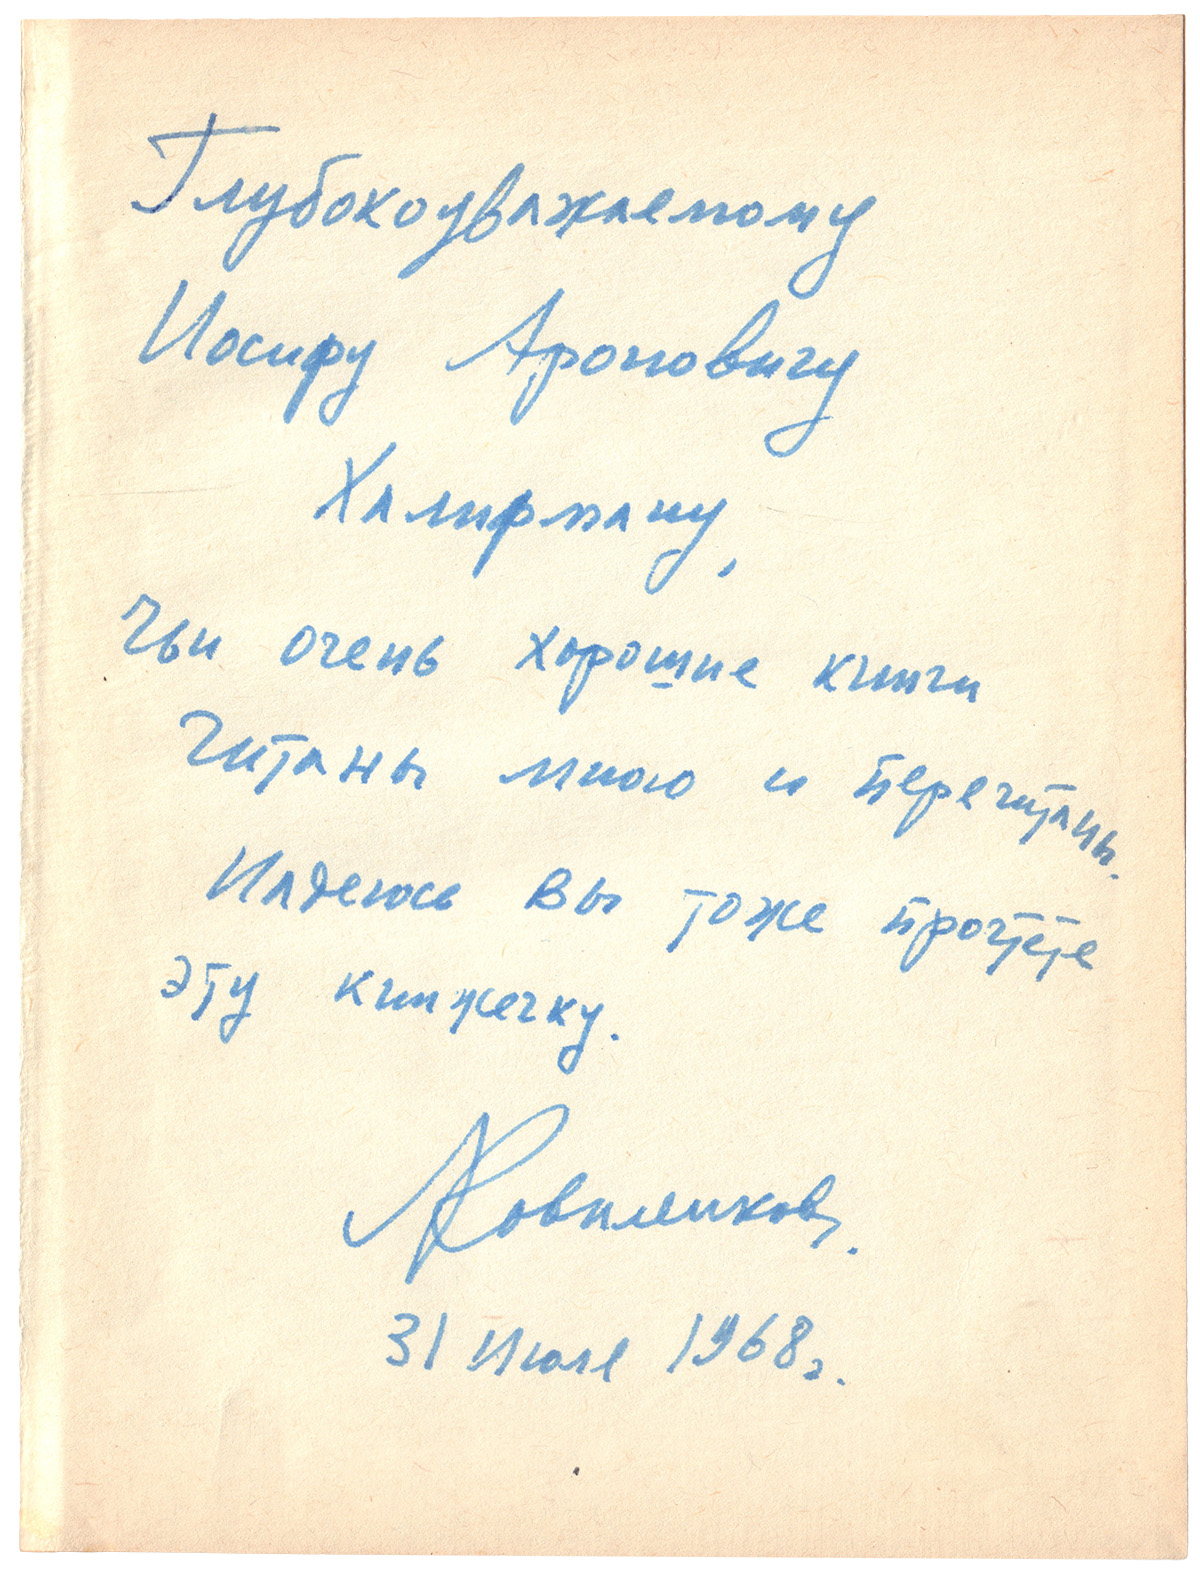 Глубокоуважаемому
Иосифу Ароновичу
Халифману,
чьи очень хорошие книги
читаны мною и перечитаны.
Надеюсь вы тоже прочтете
эту книжечку.
31 июля 1968 г.